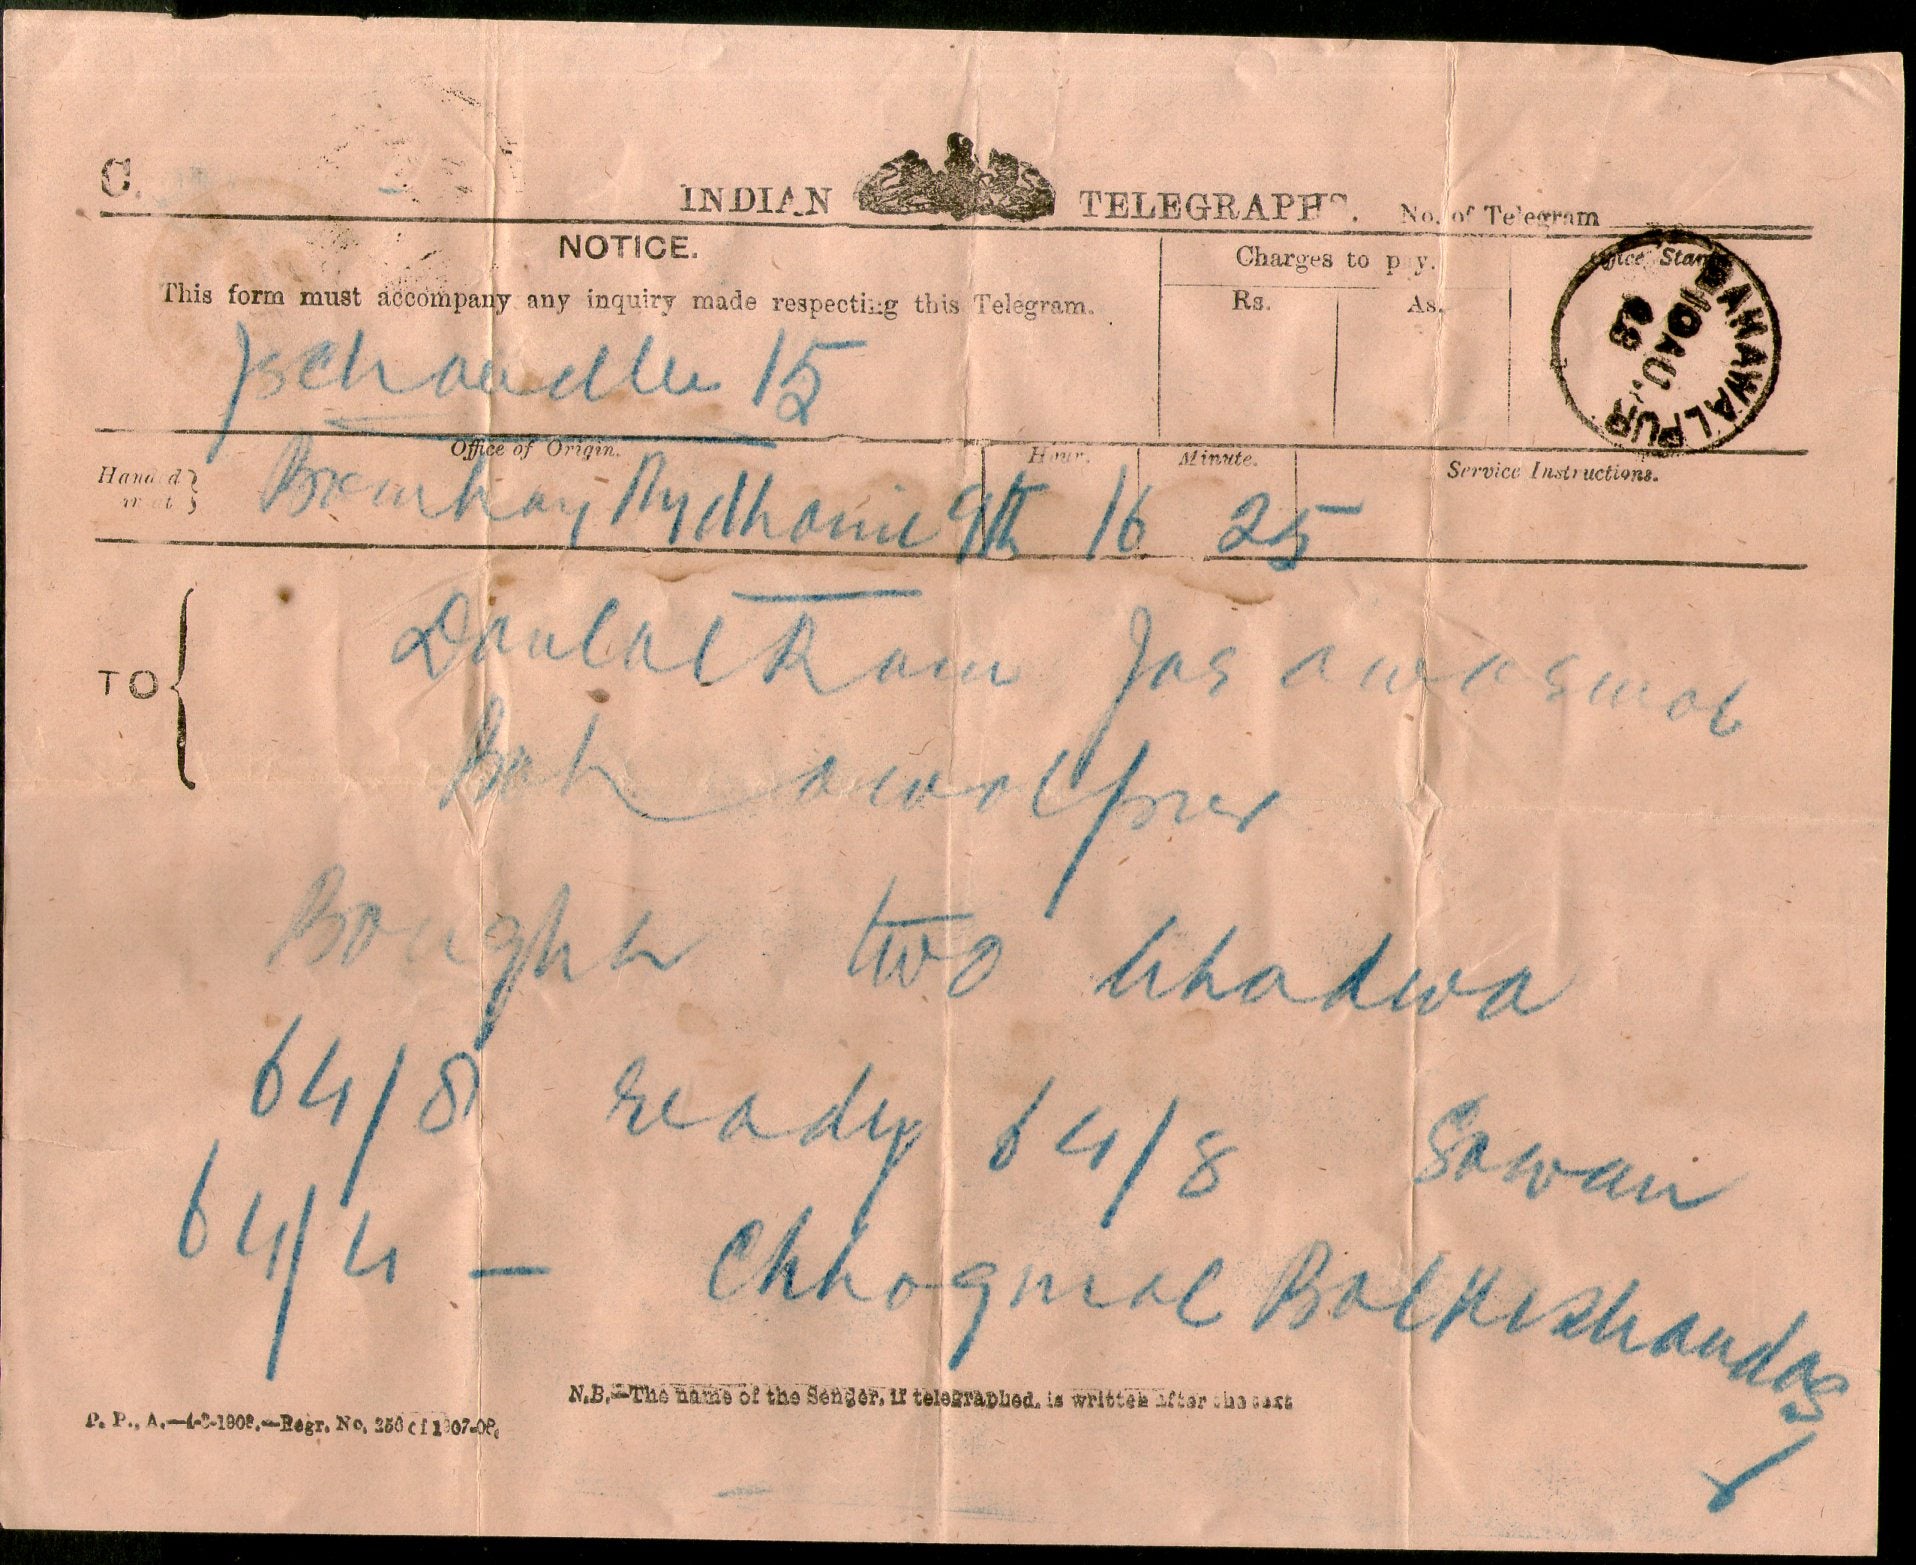 C.
INDIAN TELEGRAPHS. No. of Telegram
NOTICE.
This form must accompany any inquiry made respecting this Telegram.
Charges to pay.
Rs. As.
Office Stamp
BAHAWALPUR
10 AU.
15
Office of Origin. Hour. Minute. Service Instructions.
Handed in at
Bombay Pydhonie 9th 16 25
TO
Daulat Ram
Bahawalpur
Bought two bhadwa
64/8 ready 64/8 Sawan
64/4 — Chhogmal Balkishandas
N.B.—The name of the Sender, if telegraphed, is written after the text
P. P., A.—4-3-1908.—Regr. No. 256 of 1907-08.